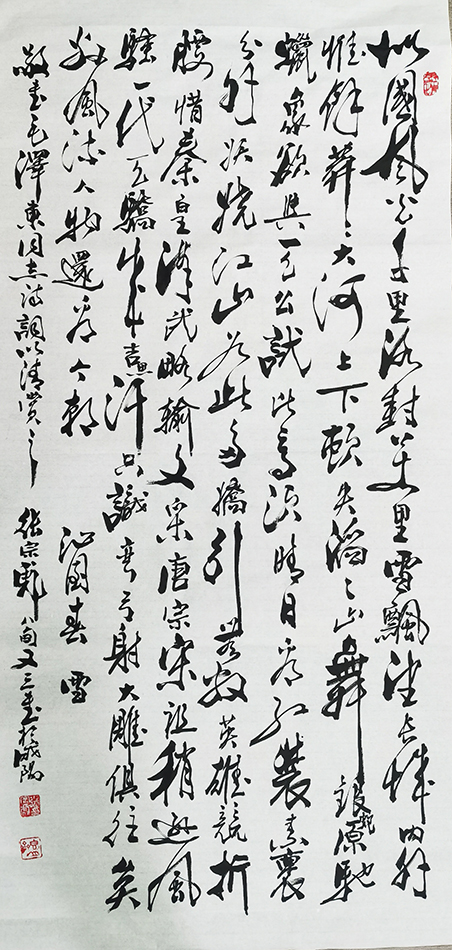 北國風光千里冰封萬里雪飄望長城内外
惟餘莽々大河上下頓失滔々山舞銀蛇原馳
蠟象欲與天公試比高須晴日看紅裝素裹
分外妖嬈江山如此多嬌引無數英雄競折
腰惜秦皇漢武略輸文采唐宗宋祖稍遜風
騷一代天驕成吉思汗只識彎弓射大雕俱往矣
數風流人物還看今朝 沁園春 雪
敬書毛澤東同志詩詞以清賞之 張宗 八旬又三書於咸陽